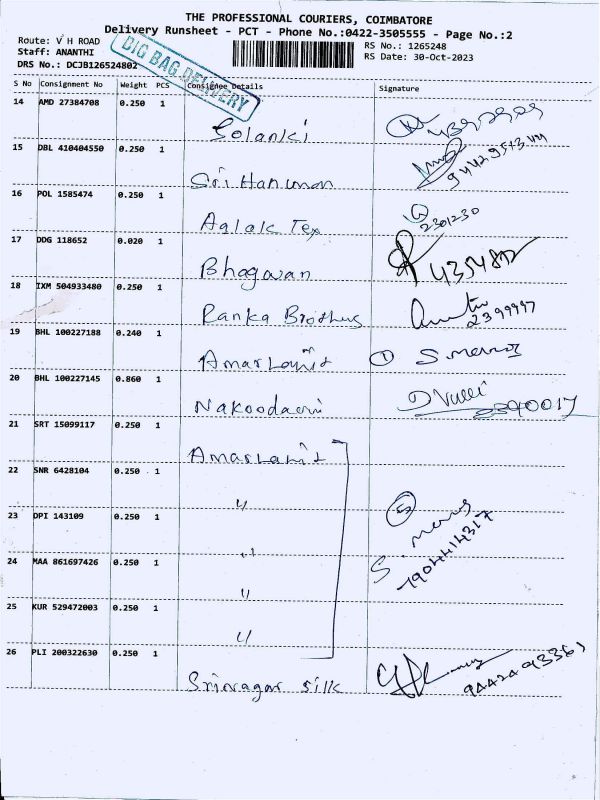 THE PROFESSIONAL COURIERS, COIMBATORE
Delivery Runsheet - PCT - Phone No.:0422-3505555 - Page No.:2
Route: V H ROAD
RS No.: 1265248
Staff: ANANTHI
RS Date: 30-Oct-2023
DRS No.: DCJB126524802
DIG BAG DELIVERY
S No Consignment No Weight PCS Consignee Details Signature
14 AMD 27384708 0.250 1
Solanki
15 DBL 410404550 0.250 1
Sri Hanuman
16 POL 1585474 0.250 1
2301230
Aalak Tex
17 DDG 118652 0.020 1
Bhagavan
435482
18 IXM 504933480 0.250 1
Ranka Brothers
2399997
19 BHL 100227188 0.240 1
Amarlamit 1
20 BHL 100227145 0.860 1
Nakoodaari
2390017
21 SRT 15099117 0.250 1
Amarlamit
22 SNR 6428104 0.250 1
〃 5
23 DPI 143109 0.250 1
〃
7904414317
24 MAA 861697426 0.250 1
〃
25 KUR 529472003 0.250 1
〃
26 PLI 200322630 0.250 1
Srinagar silk